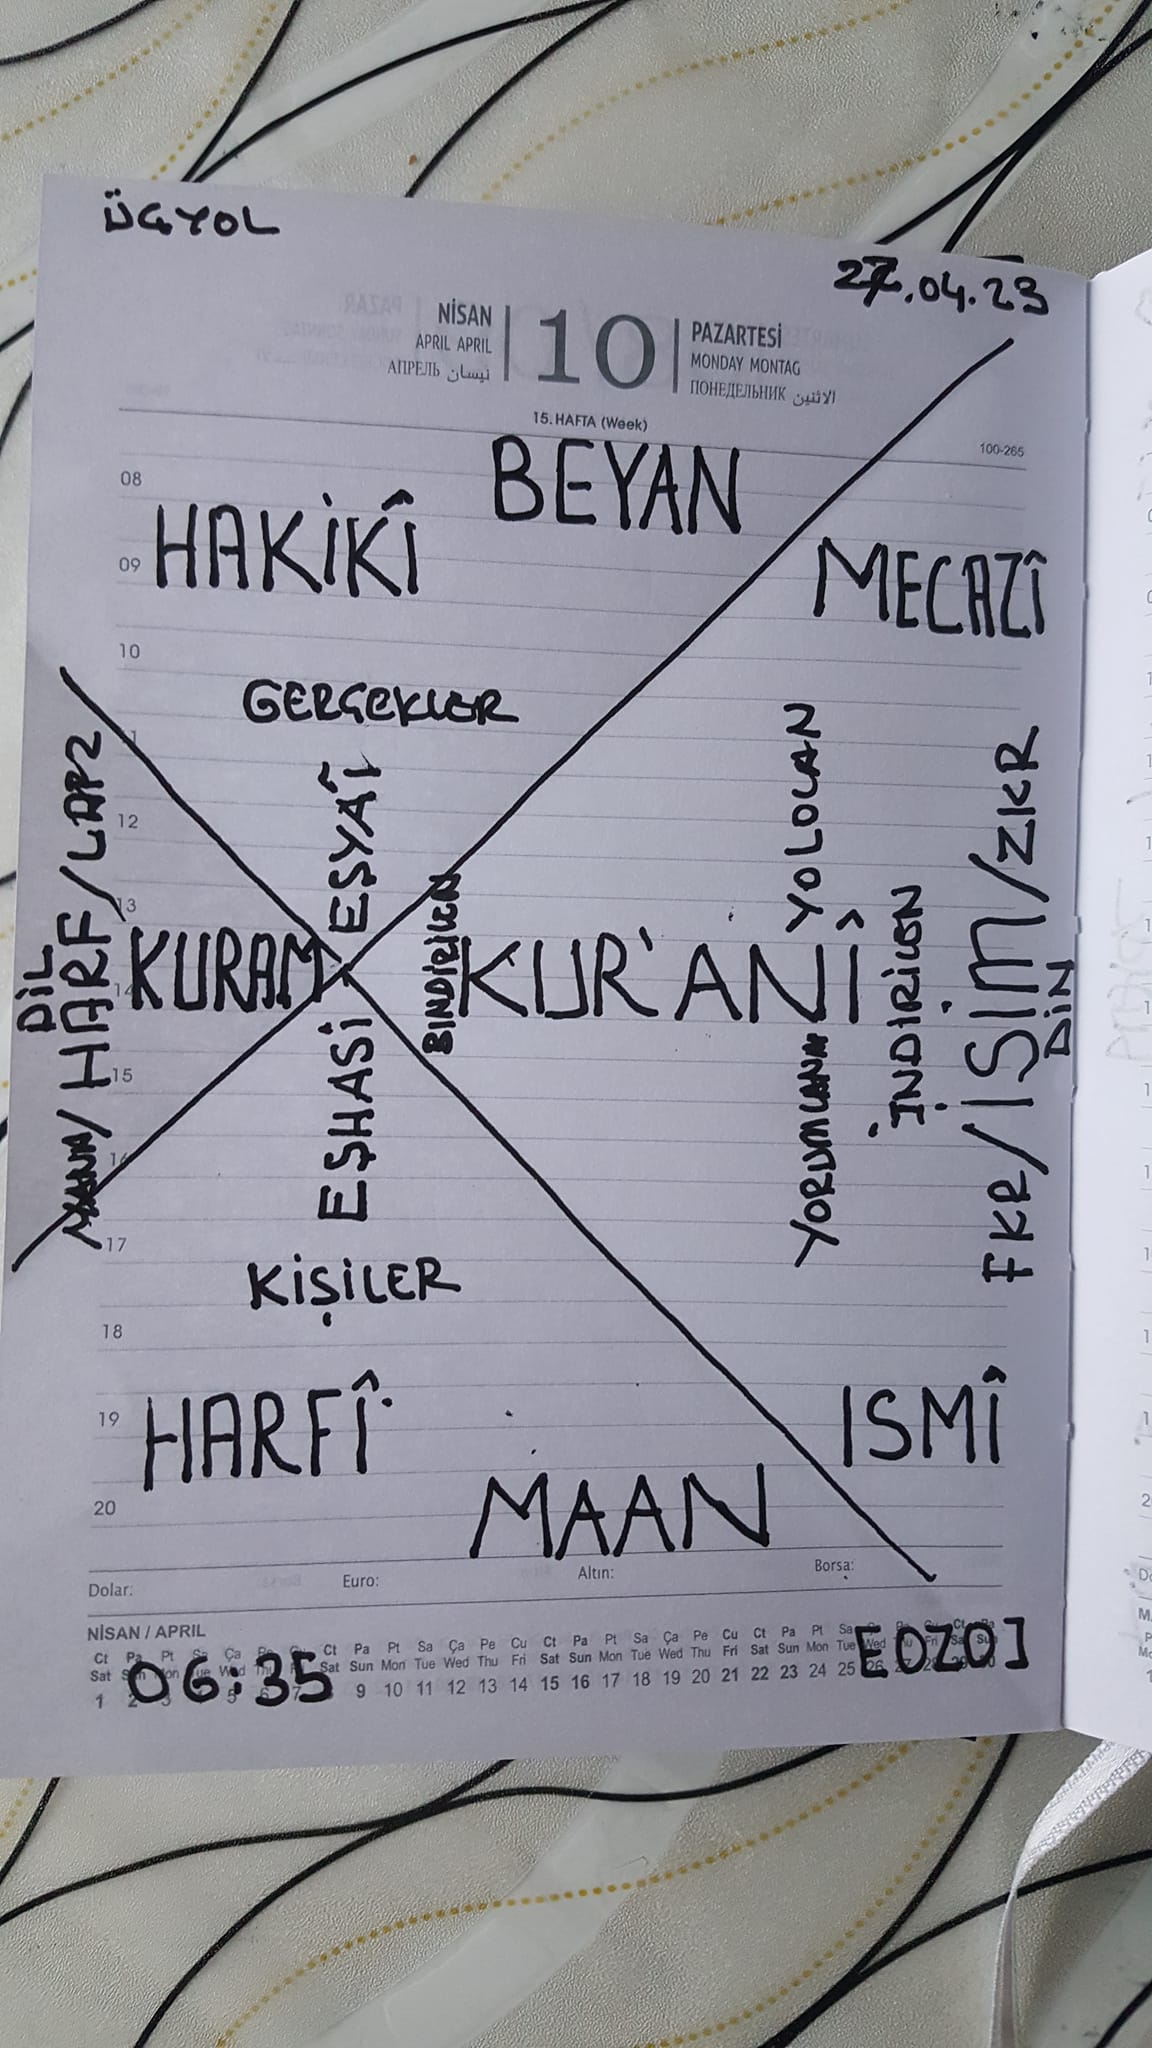 ÜÇYOL
27.04.23
NİSAN
APRIL APRIL
АПРЕЛЬ نيسان
10
PAZARTESİ
MONDAY MONTAG
ПОНЕДЕЛЬНИК الاثنين
15. HAFTA (Week)
100-265
BEYAN
08
HAKİKÎ
09
MECAZÎ
10
GERÇEKLER
11
EŞYAÎ
12
13
DİL
MANA/HARF/LAFZ
14
KURAM
BİNDİRİLEN
KUR'ANÎ
YOLOLAN
YORUMLANAN
İNDİRİLEN
FKR/İSİM/ZKR
DİN
EŞHASİ
15
16
17
KİŞİLER
18
HARFÎ
19
ISMÎ
20
MAAN
Dolar:
Euro:
Altın:
Borsa:
NİSAN / APRIL
Ct Pa Pt Sa Ça Pe Cu Ct Pa Pt Sa Ça Pe Cu Ct Pa Pt Sa Ça Pe Cu Ct Pa Pt Sa
Sat Sun Mon Tue Wed Thu Sat Sun Mon Tue Wed Thu Fri Sat Sun Mon Tue Wed Thu Fri Sat Sun Mon Tue Wed Thu Fri Sat Sun
1 2 3 5 6 7 9 10 11 12 13 14 15 16 17 18 19 20 21 22 23 24 25 26 27 28 29 30
06:35
EOZO]